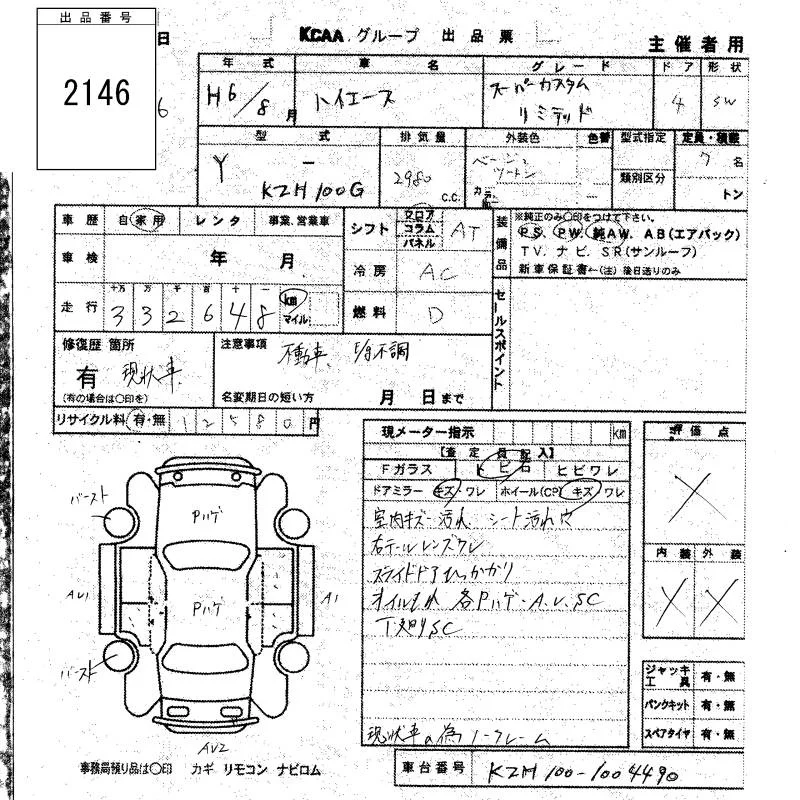 出品番号
2146
日
6
KCAA グループ 出品票
主催者用
年式 車名 グレード ドア 形状
H6/8月 ハイエース スーパーカスタム リミテッド 4 SW
型式 排気量 外装色 色替 型式指定 定員・積載
Y - KZH100G 2980 c.c. ベージュ ツートン カラー - 類別区分 7名 トン
車歴 自家用 レンタ 事業、営業車
シフト フロア コラム パネル AT
装備品 ※純正のみ〇印をつけて下さい。
PS、PW、純AW、AB(エアバック)
TV、ナビ、SR(サンルーフ)
新車保証書←(注)後日送りのみ
車検 年 月
冷房 AC
走行 十万 万 千 百 十 一
332648 km マイル
燃料 D
セールスポイント
修復歴 箇所
有 現状車
(有の場合は〇印を)
注意事項 不動車、E/g不調
名変期日の短い方 月 日まで
リサイクル料 有・無 12580円
現メーター指示 km
【査定員記入】
Fガラス トビ石 ヒビワレ
ドアミラー キズ・ワレ ホイール(CP) キズ・ワレ
室内キズ・汚れ シート汚れ穴
右テールレンズワレ
スライドドアひっかかり
オイルもれ 各Pハゲ・A.U.SC
下廻りSC
現状車の為ノークレーム
評価点
X
内装 外装
X X
ジャッキ 工具 有・無
パンクキット 有・無
スペアタイヤ 有・無
バースト
Pハゲ
AU1
Pハゲ
A1
バースト
AU2
事務局預り品は〇印 カギ リモコン ナビロム
車台番号 KZH100-1004490